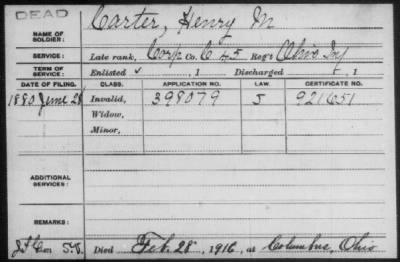 DEAD
Carter, Henry M
NAME OF SOLDIER:
SERVICE: Late rank, Corp Co. C 45 Reg't Ohio Inf
TERM OF SERVICE: Enlisted , 1 Discharged , 1
DATE OF FILING. CLASS. APPLICATION NO. LAW. CERTIFICATE NO.
1880 June 28 Invalid, 398079 J 921651
Widow,
Minor,
ADDITIONAL SERVICES:
REMARKS:
Died Feb. 28", 1916, at Columbus, Ohio